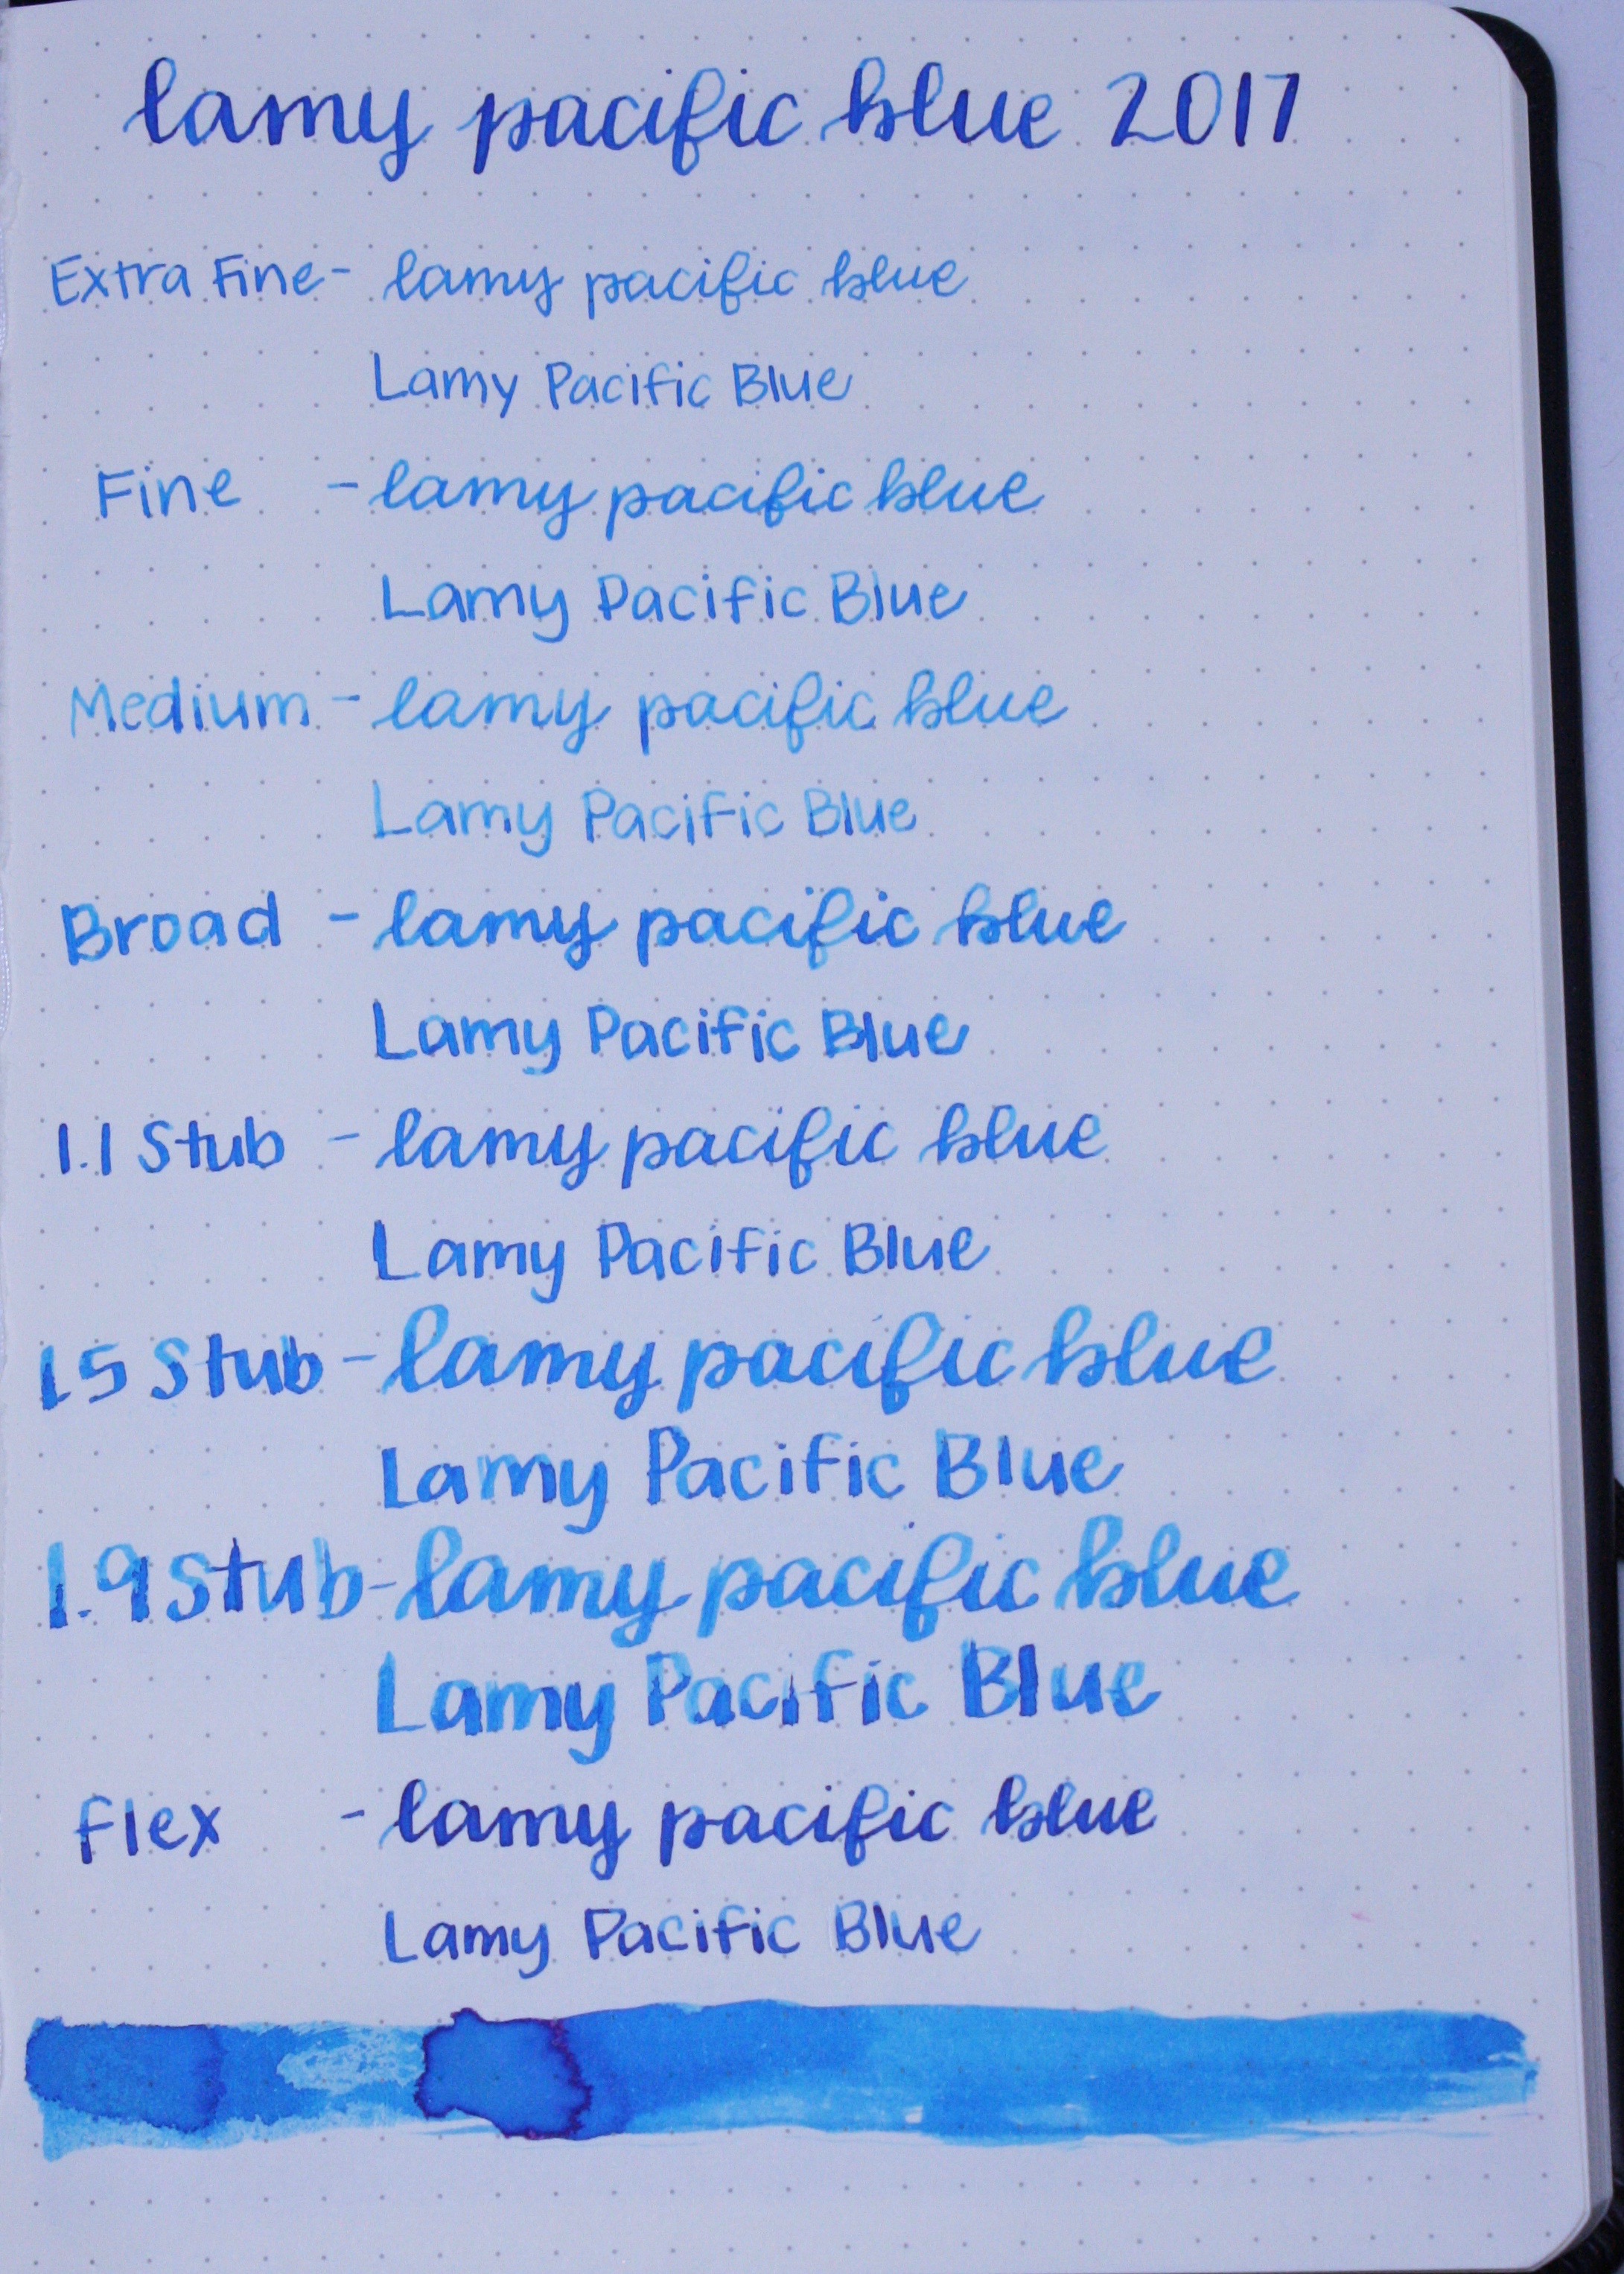 lamy pacific blue 2017
Extra Fine - lamy pacific blue
Lamy Pacific Blue
Fine - lamy pacific blue
Lamy Pacific Blue
Medium - lamy pacific blue
Lamy Pacific Blue
Broad - lamy pacific blue
Lamy Pacific Blue
1.1 Stub - lamy pacific blue
Lamy Pacific Blue
1.5 Stub - lamy pacific blue
Lamy Pacific Blue
1.9 Stub - lamy pacific blue
Lamy Pacific Blue
Flex - lamy pacific blue
Lamy Pacific Blue